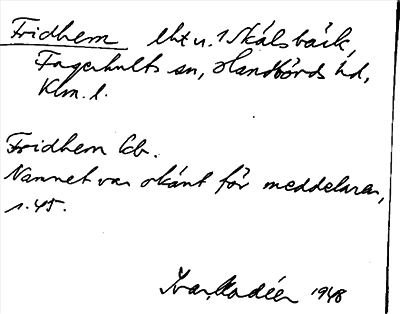 Fridhem lht u. 1 Skälsbäck,
Fagerhults sn, Handbörds hd,
Klm. l.
Fridhem lb.
Namnet var okänt för meddelaren,
s. 45.
Ivar Modéer 1948